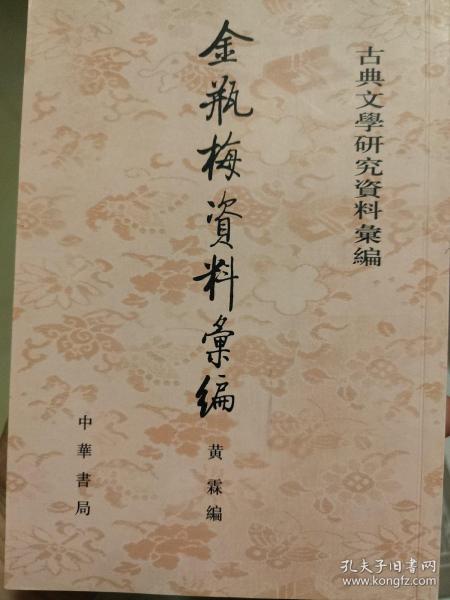 古典文學研究資料彙編
金瓶梅資料彙編
黄霖編
中華書局
孔夫子旧书网
www.kongfz.com